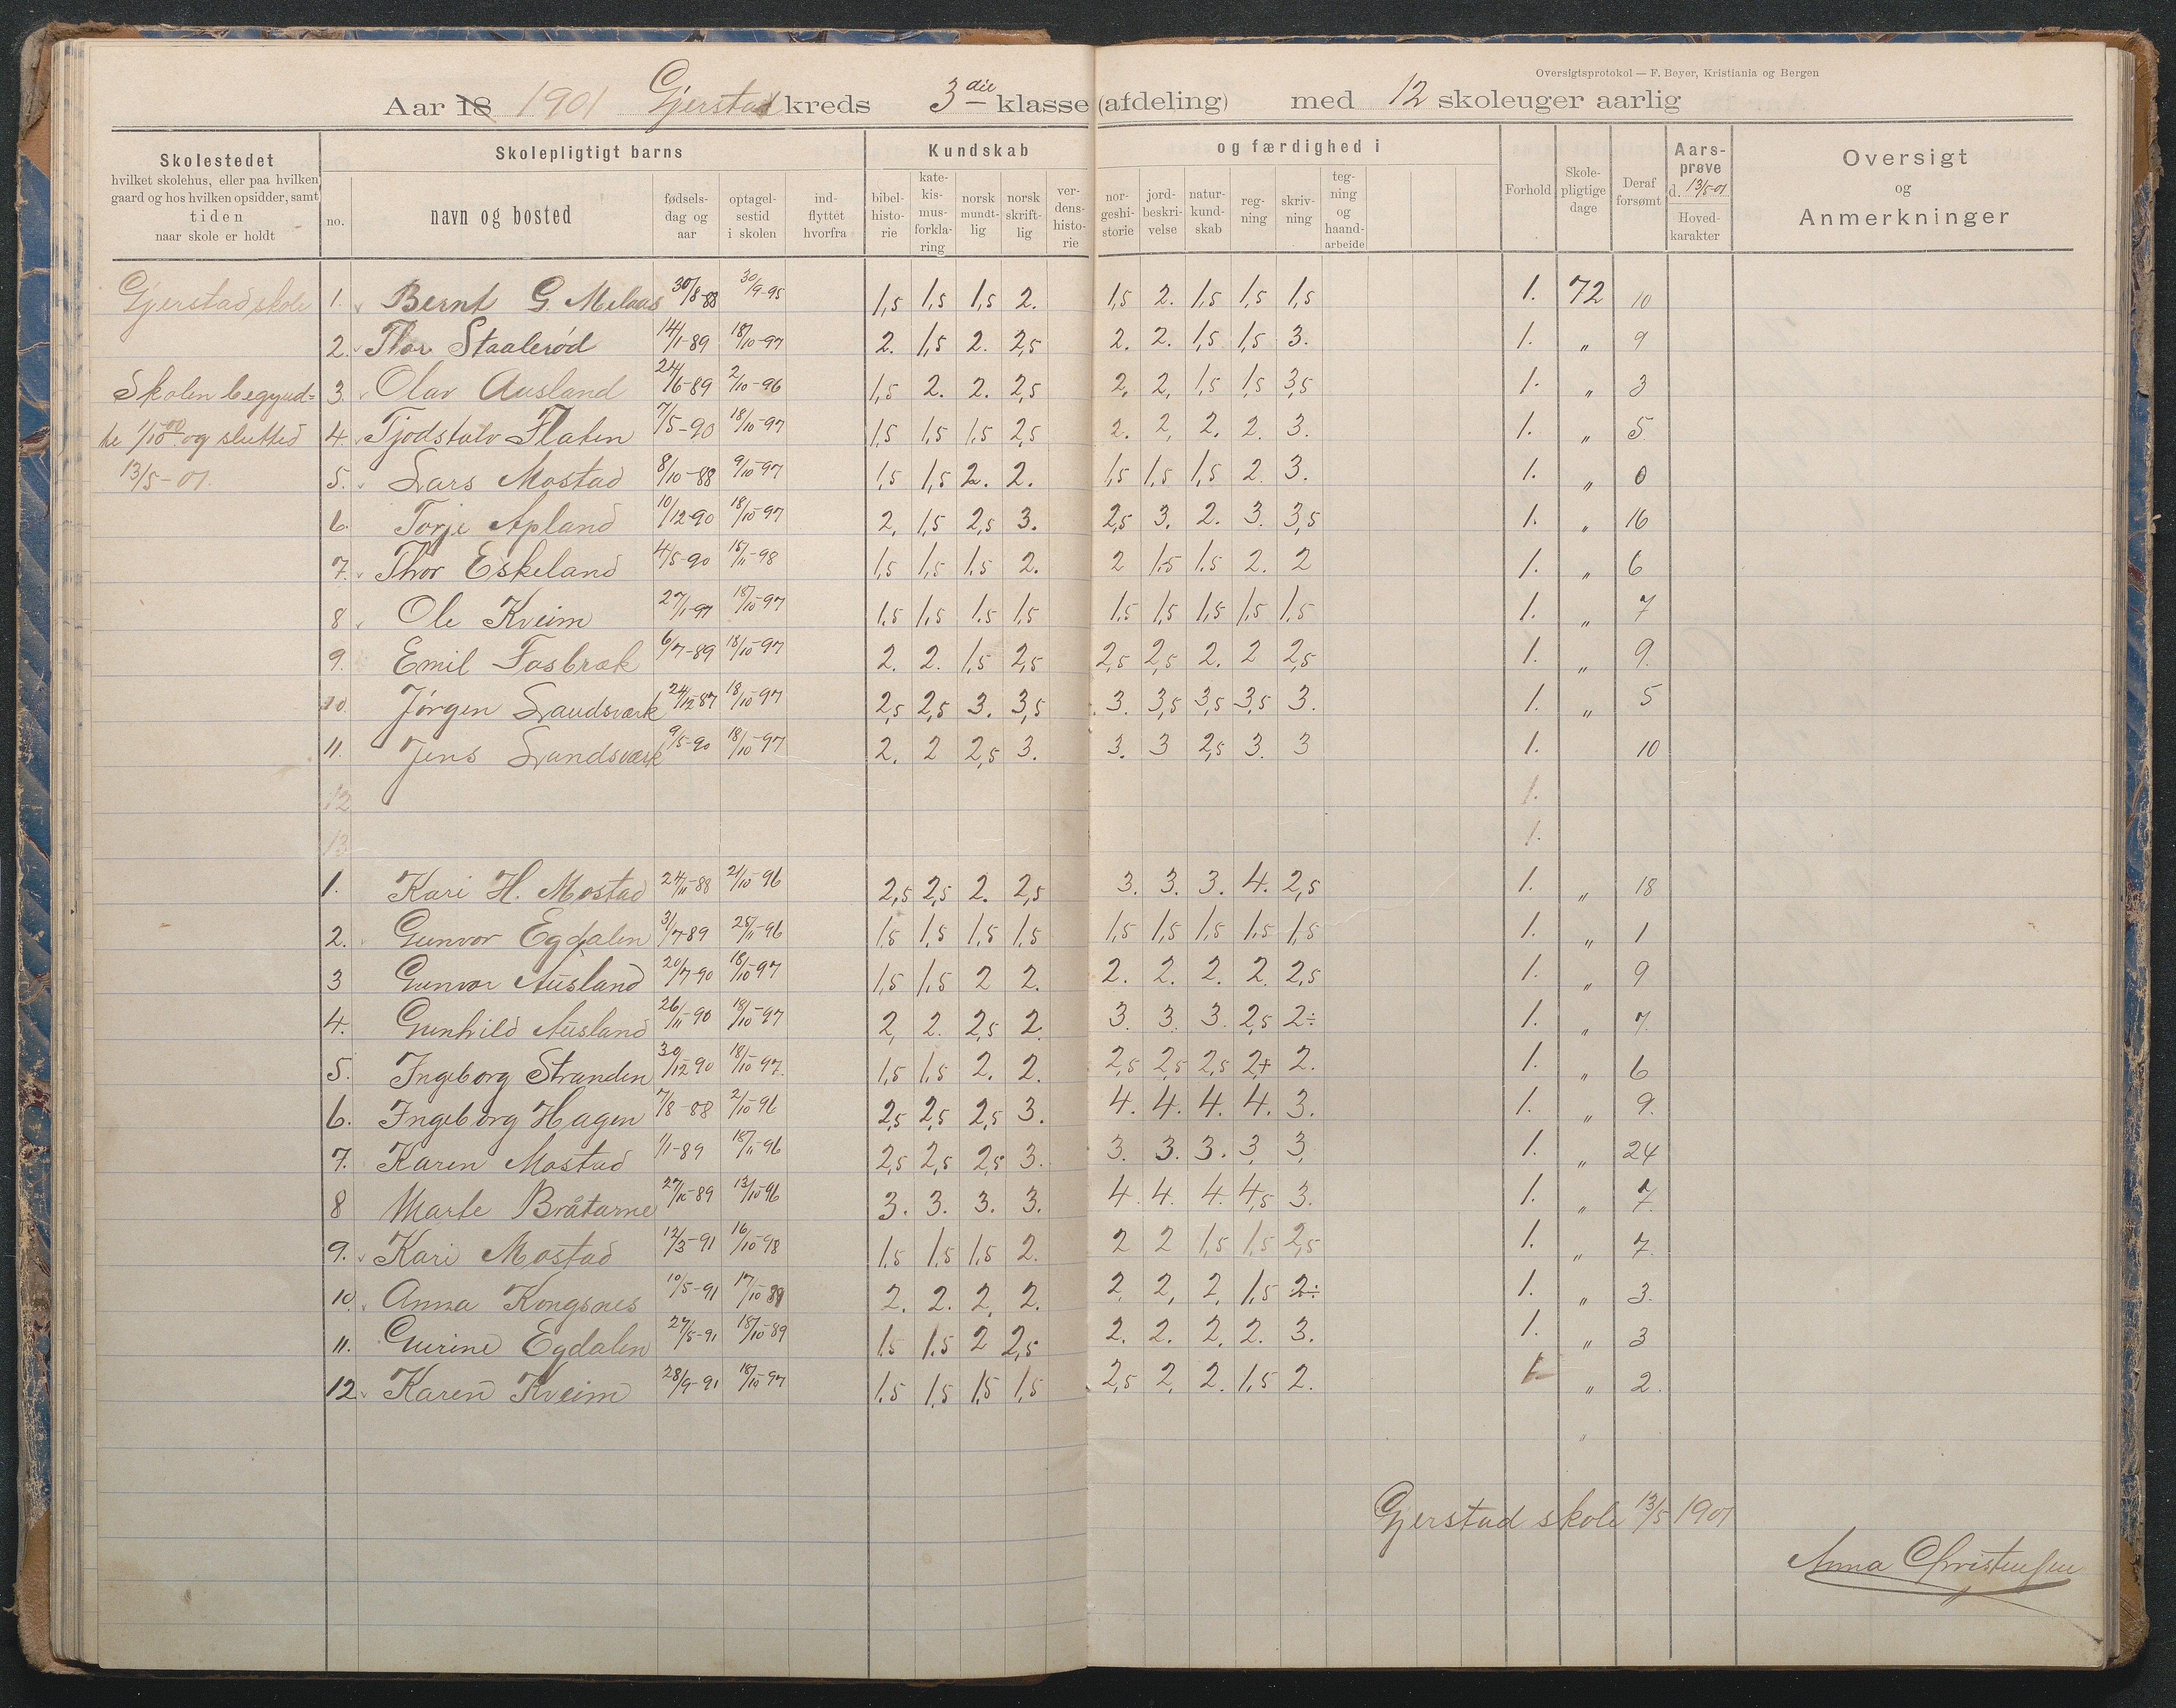 Oversigtsprotokol — F. Beyer, Kristiania og Bergen
Aar 18 1901 Gjerstad kreds 3die klasse (afdeling) med 12 skoleuger aarlig
Skolestedet
hvilket skolehus, eller paa hvilken
gaard og hos hvilken opsidder, samt
tiden
naar skole er holdt
Skolepligtigt barns
no.
navn og bosted
fødsels-
dag og
aar
optagel-
sestid
i skolen
ind-
flyttet
hvorfra
Kundskab
bibel-
histo-
rie
kate-
kis-
mus-
forkla-
ring
norsk
mundt-
lig
norsk
skrift-
lig
ver-
dens-
histo-
rie
og færdighed i
nor-
geshi-
storie
jord-
beskri-
velse
natur-
kund-
skab
reg-
ning
skriv-
ning
teg-
ning
og
haand-
arbeide
Forhold
Skole-
pligtige
dage
Deraf
forsømt
Aars-
prøve
d. 13/5-01
Hoved-
karakter
Oversigt
og
Anmerkninger
Gjerstad skole
Skolen begynd=
te 1/10 00 og slutted
13/5-01.
1. Bernt G. Melaas 30/8-88 30/9-95 1,5 1,5 1,5 2. 1,5 2. 1,5 1,5 1,5 1. 72 10
2. Thor Staalerød 14/1-89 18/10-97 2. 1,5 2. 2,5 2. 2. 1,5 1,5 3. 1. " 9
3. Olav Ausland 24/6-89 2/10-96 1,5 2. 2. 2,5 2, 2, 1,5 1,5 3,5 1. " 3
4. Tjodstalv Flaten 7/5-90 18/10-97 1,5 1,5 1,5 2,5 2. 2, 2. 2. 3. 1. " 5.
5. Lars Mostad 8/10-88 9/10-97 1,5 1,5 2. 2. 1,5 1,5 1,5 2. 3. 1. " 0
6. Torje Apland 10/12-90 18/10-97 2, 1,5 2,5 3. 2,5 3. 2. 3. 3,5 1. " 16
7. Thor Eskeland 4/5-90 15/11-98 1,5 1,5 1,5 2. 2 1.5 1.5 2. 2 1. " 6
8 Ole Kveim 27/1-97 18/10-97 1.5 1,5 1.5 1,5 1,5 1,5 1,5 1,5 1,5 1. " 7
9. Emil Fosbræk 6/7-89 18/10-97 2. 2. 1,5 2,5 2,5 2,5 2. 2 2,5 1. " 9.
10. Jørgen Landsværk 24/12-87 18/10-97 2,5 2,5 3. 3,5 3. 3,5 3,5 3,5 3. 1. " 5
11. Jens Landsværk 9/5-90 18/10-97 2. 2 2,5 3. 3. 3 2,5 3. 3 1. 10
12 1.
13 1.
1. Kari H. Mostad 24/11-88 21/10-96 2,5 2,5 2. 2,5 3. 3. 3. 4. 2,5 1. " 18
2. Gunvor Egdalen 3/7-89 25/11-96 1,5 1,5 1,5 1,5 1,5 1,5 1,5 1.5 1,5 1. " 1
3 Gunvor Ausland 20/7-90 18/10-97 1,5 1,5 2 2. 2. 2. 2. 2. 2,5 1. " 9
4. Gunhild Ausland 26/11-90 18/10-97 2, 2. 2,5 2. 3. 3. 3. 2,5 2÷ 1. " 7.
5. Ingeborg Stranden 30/12-90 18/10-97 1,5 1,5 2. 2. 2,5 2,5 2,5 2,+ 2. 1. " 6
6. Ingeborg Hagen 7/8-88 2/10-96 2,5 2,5 2,5 3. 4. 4. 4. 4. 3. 1. " 9.
7. Karen Mostad 1/1-89 18/11-96 2,5 2,5 2,5 3. 3. 3. 3. 3, 3, 1. " 24
8 Marte Bråtarne 27/10-89 13/10-96 3. 3. 3. 3. 4. 4. 4. 4,5 3. 1. " 7.
9. Kari Mostad 12/3-91 16/10-98 1.5 1.5 1.5 2. 2 2 1,5 1,5 2,5 1. " 7.
10. Anna Kongsnes 10/5-91 17/10-89 2. 2. 2, 2. 2, 2, 2, 1,5 2÷ 1. " 3.
11. Gurine Egdalen 27/5-91 18/10-89 1.5 1.5 2 2,5 2. 2. 2. 2. 3. 1. " 3
12. Karen Kveim 28/9-91 18/10-97 1,5 1,5 1,5 1,5 2,5 2, 2. 1,5 2. 1. " 2.
"
Gjerstad skole 13/5 1901
Anna Christensen